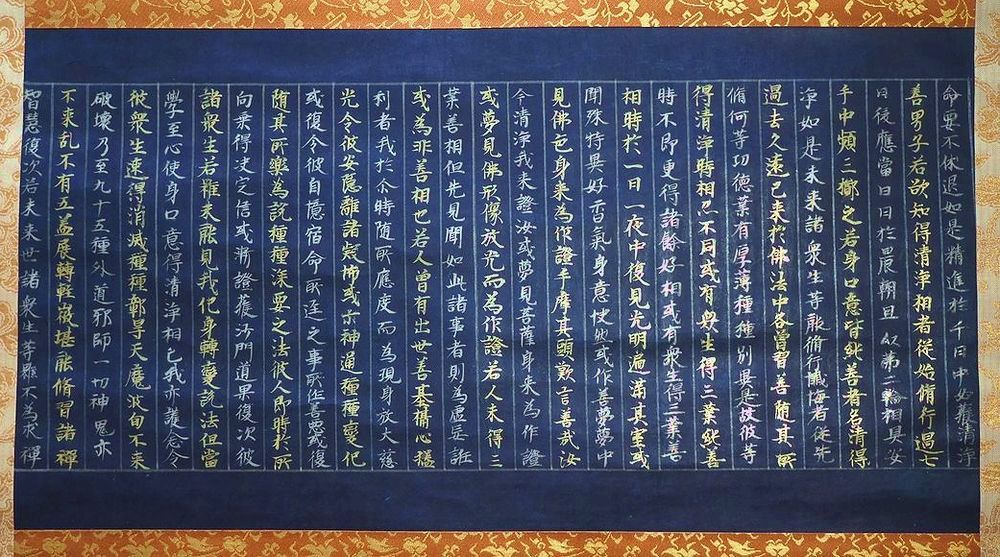 命要不休退如是精進於千日中必獲清淨
善男子若欲知得清淨相者從始脩行過七
日後應當日日於晨朝旦以第二輪相具安
手中頻三擲之若身口意皆純善者名清得
淨如是未來諸衆生等能脩行懺悔者從先
過去久遠已來於佛法中各曾習善随其所
脩何等功德業有厚薄種種別異是故彼等
得清淨時相忍不同或有衆生得三業純善
時不即更得諸餘好相或有衆生得三業善
相時於一日一夜中復見光明遍滿其室或
聞殊特異好香氣身意快然或作善夢夢中
見佛色身来為作證手摩其頭歎言善哉汝
今清淨我来證汝或夢見菩薩身来為作證
或夢見佛形像放光而為作證若人未得三
業善相但先見聞如此諸事者則為虛妄誑
或為非善相也若人曾有出世善基攝心猛
利者我於尒時随所應度而為現身放大慈
光令彼安隠離諸疑怖或示神通種種變化
或復令彼自憶宿命所逕之事所作善惡或復
随其所樂為說種種深要之法彼人即時於所
向乗得决定信或漸證獲沙門道果復次彼
諸衆生若雖未能見我化身轉變說法但當
學至心使身口意得清淨相已我亦護念令
彼衆生速得消滅種種鄣㝵天魔波旬不来
破壞乃至九十五種外道邪師一切神鬼亦
不来乱不有五盖展轉輕微堪能脩習諸禪
智慧復次若未来世諸衆生等雖不為求禪